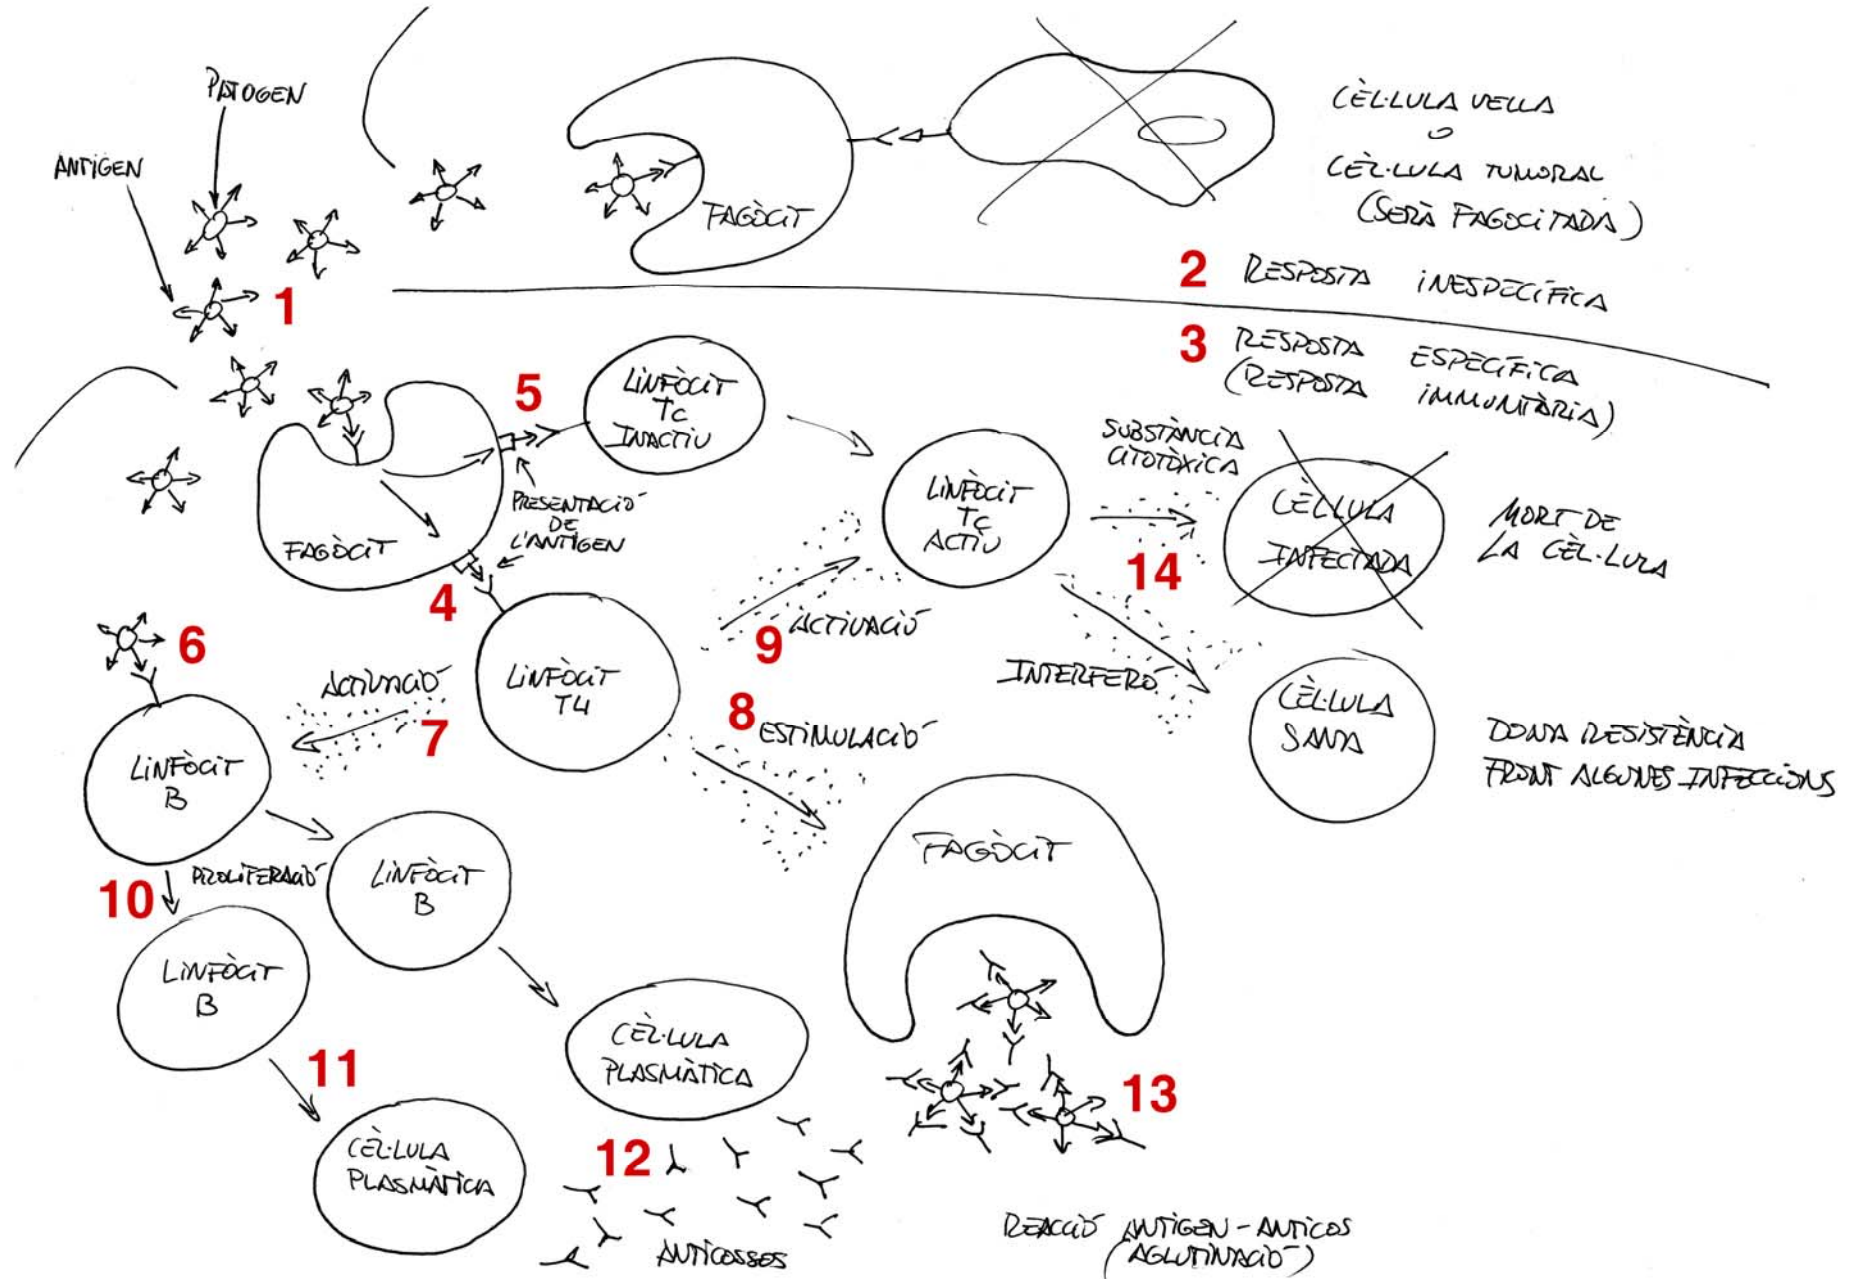 PATOGEN
ANTIGEN
1
FAGÒCIT
CÈL·LULA VELLA
O
CÈL·LULA TUMORAL
(SERÀ FAGOCITADA)
2 RESPOSTA INESPECÍFICA
3 RESPOSTA ESPECÍFICA
(RESPOSTA IMMUNITÀRIA)
FAGÒCIT
5
LINFÒCIT
Tc
INACTIU
PRESENTACIÓ
DE
L'ANTIGEN
4
LINFÒCIT
Tc
ACTIU
SUBSTÀNCIA
CITOTÒXICA
14
CÈL·LULA
INFECTADA
MORT DE
LA CÈL·LULA
6
ACTIVACIÓ
7
LINFÒCIT
T4
9 ACTIVACIÓ
8 ESTIMULACIÓ
INTERFERÓ
CÈL·LULA
SANA
DONA RESISTÈNCIA
FRONT ALGUNES INFECCIONS
LINFÒCIT
B
10 PROLIFERACIÓ
LINFÒCIT
B
LINFÒCIT
B
FAGÒCIT
11
CÈL·LULA
PLASMÀTICA
CÈL·LULA
PLASMÀTICA
12
ANTICOSSOS
13
REACCIÓ ANTIGEN-ANTICOS
(AGLUTINACIÓ)